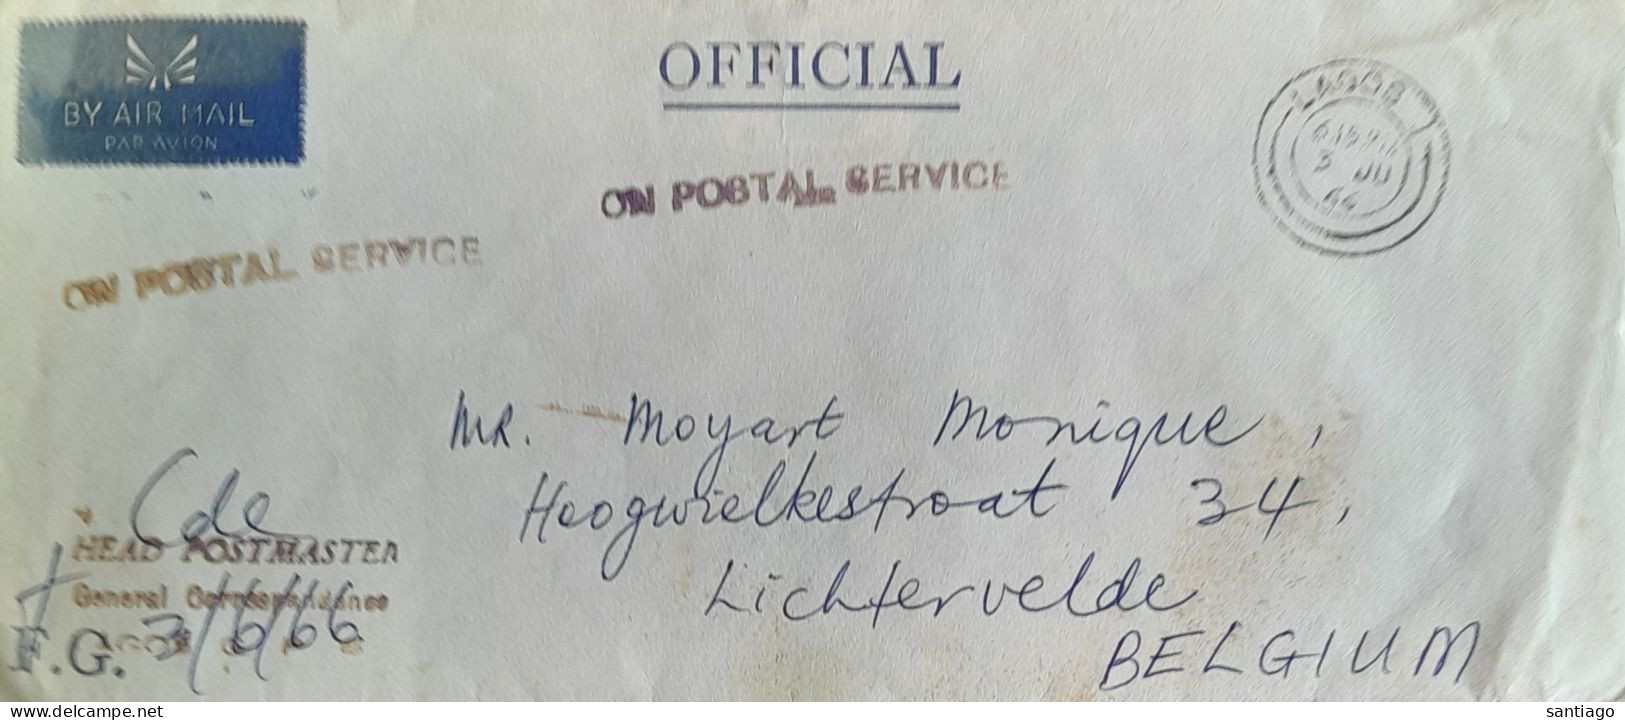 BY AIR MAIL
PAR AVION
OFFICIAL
LAGOS
3 JU
ON POSTAL SERVICE
ON POSTAL SERVICE
MR. Moyart Monique,
Hoogwielkestraat 34,
Lichtervelde
BELGIUM
HEAD POSTMASTER
General Correspondence
F.G. 3/6/66
www.delcampe.net
santiago